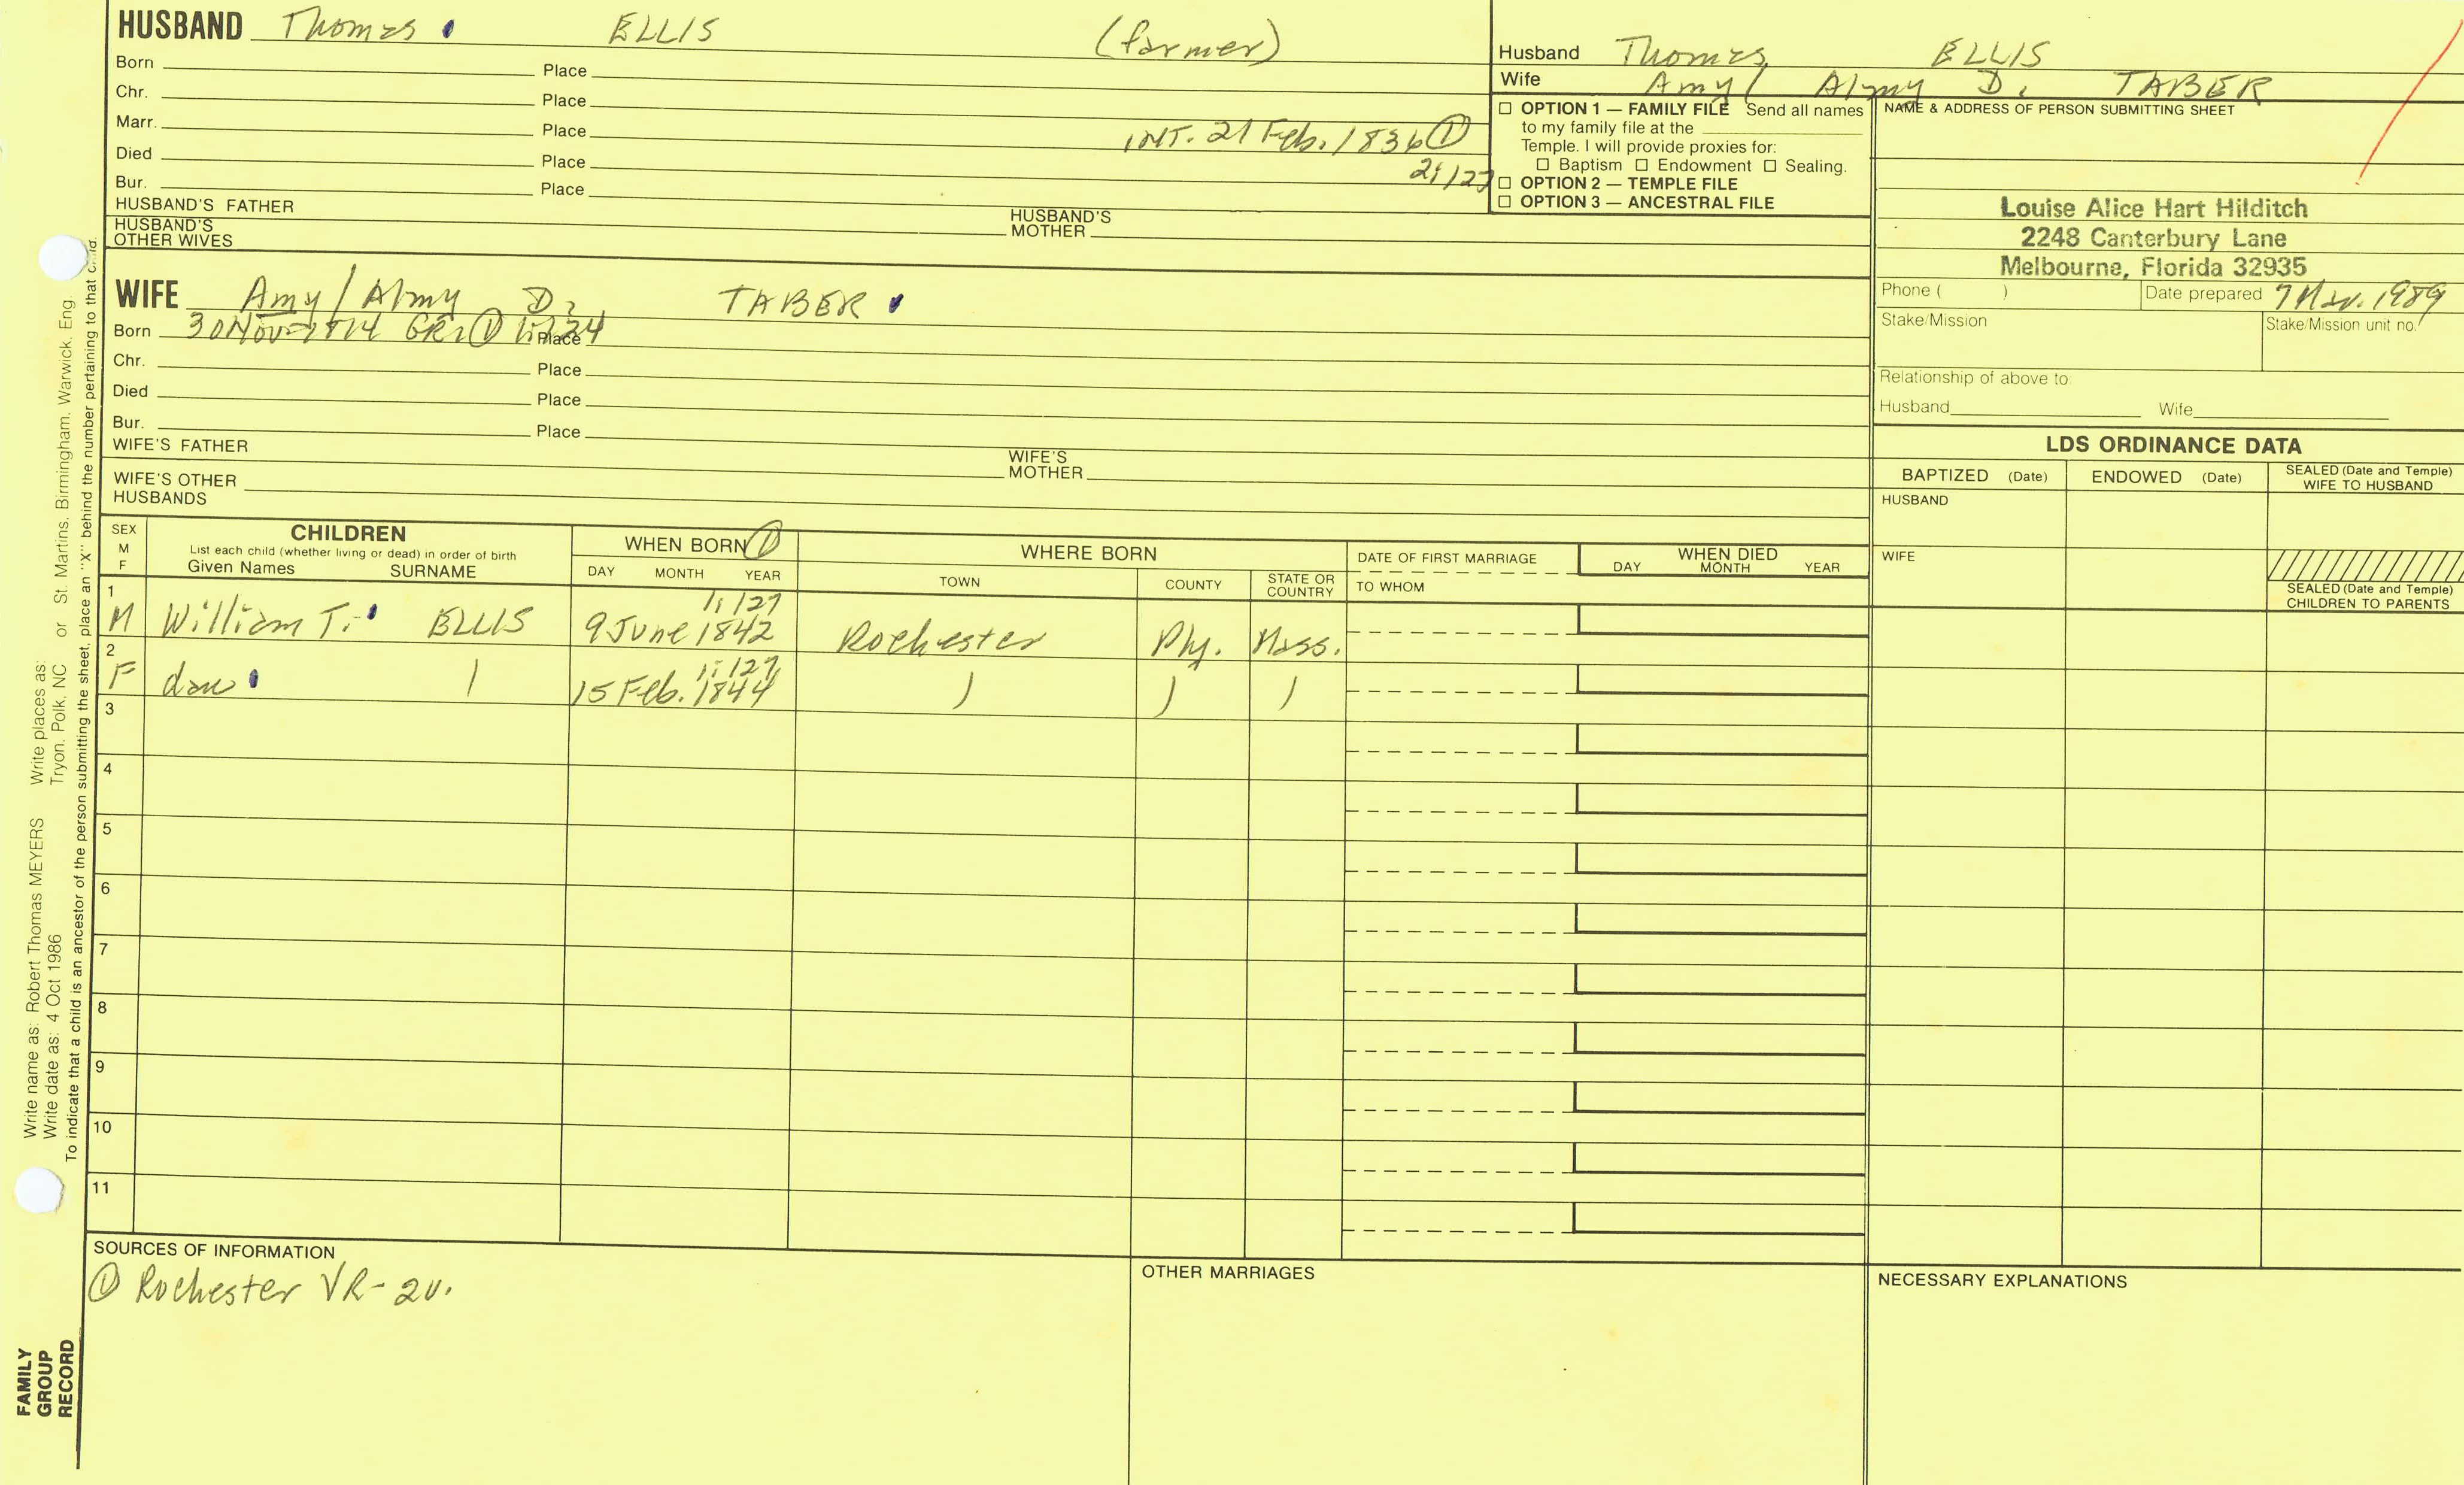 HUSBAND Thomas ELLIS (farmer)
Born Place
Chr. Place
Marr. Place INT. 21 Feb. 1836 ①
Died Place 2:/27
Bur. Place
HUSBAND'S FATHER HUSBAND'S MOTHER
HUSBAND'S OTHER WIVES
Husband Thomas ELLIS
Wife Amy / Almy D. TABER
☐ OPTION 1 — FAMILY FILE Send all names
to my family file at the
Temple. I will provide proxies for:
☐ Baptism ☐ Endowment ☐ Sealing.
☐ OPTION 2 — TEMPLE FILE
☐ OPTION 3 — ANCESTRAL FILE
NAME & ADDRESS OF PERSON SUBMITTING SHEET
Louise Alice Hart Hilditch
2248 Canterbury Lane
Melbourne, Florida 32935
Phone ( ) Date prepared 7 Mar. 1989
Stake/Mission Stake/Mission unit no.
Relationship of above to
Husband Wife
WIFE Amy / Almy D. TABER
Born 30 Nov 1814 Place
Chr. Place
Died Place
Bur. Place
WIFE'S FATHER WIFE'S MOTHER
WIFE'S OTHER HUSBANDS
LDS ORDINANCE DATA
BAPTIZED (Date) ENDOWED (Date) SEALED (Date and Temple) WIFE TO HUSBAND
HUSBAND
WIFE
SEALED (Date and Temple) CHILDREN TO PARENTS
SEX M F
CHILDREN
List each child (whether living or dead) in order of birth
Given Names SURNAME
WHEN BORN ①
DAY MONTH YEAR
WHERE BORN
TOWN COUNTY STATE OR COUNTRY
DATE OF FIRST MARRIAGE
TO WHOM
WHEN DIED
DAY MONTH YEAR
1 1:/27
M William T. ELLIS 9 June 1842 Rochester Ply. Mass.
2 1:/27
F dau 15 Feb. 1844
3
4
5
6
7
8
9
10
11
SOURCES OF INFORMATION
① Rochester VR-2v.
OTHER MARRIAGES
NECESSARY EXPLANATIONS
Write name as: Robert Thomas MEYERS Write places as:
Write date as: 4 Oct 1986 Tryon, Polk, NC or St. Martins, Birmingham, Warwick, Eng
To indicate that a child is an ancestor of the person submitting the sheet, place an "X" behind the number pertaining to that child.
FAMILY
GROUP
RECORD